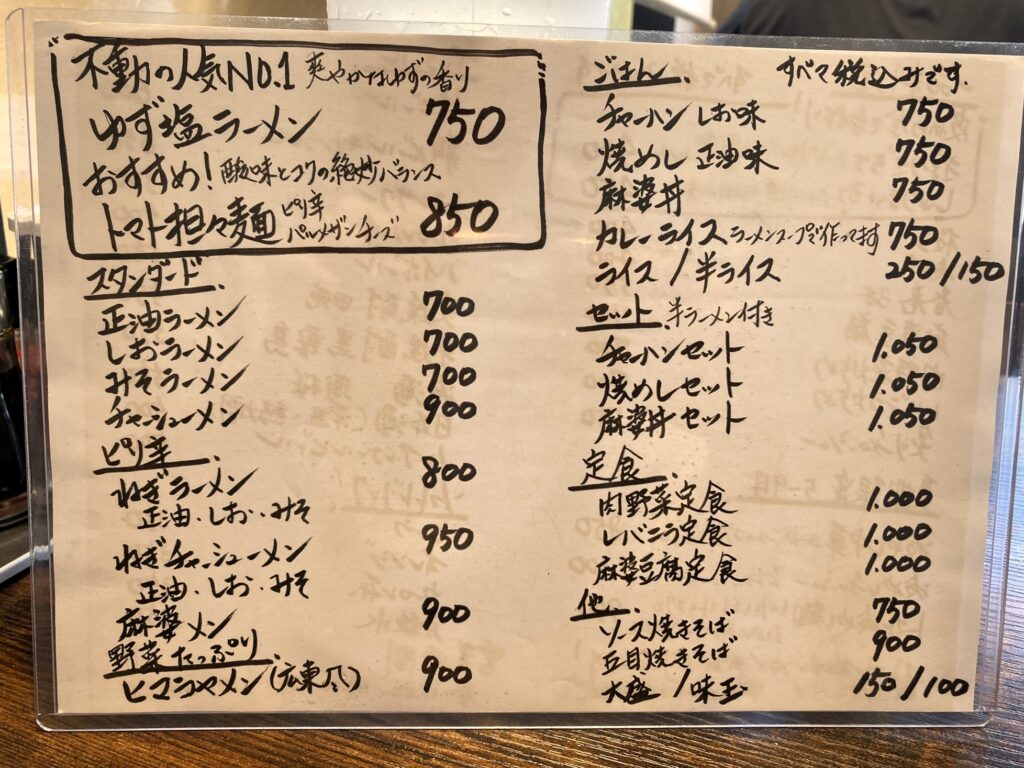 不動の人気NO.1 爽やかなゆずの香り
ゆず塩ラーメン 750
おすすめ！酸味とコクの絶妙バランス
トマト担々麺 ピリ辛 パルメザンチーズ 850
スタンダード
正油ラーメン 700
しおラーメン 700
みそラーメン 700
チャーシューメン 900
ピリ辛
ねぎラーメン 800
正油・しお・みそ
ねぎチャーシューメン 950
正油・しお・みそ
麻婆メン 900
野菜たっぷり
(広東風) 900
ごはん すべて税込みです.
チャーハン しお味 750
焼めし 正油味 750
麻婆丼 750
カレーライス ラーメンスープで作ってます 750
ライス / 半ライス 250/150
セット 半ラーメン付き
チャーハンセット 1.050
焼めしセット 1.050
麻婆丼セット 1.050
定食
肉野菜定食 1.000
レバニラ定食 1.000
麻婆豆腐定食 1.000
他
ソース焼きそば 750
五目焼きそば 900
大盛 / 味玉 150/100